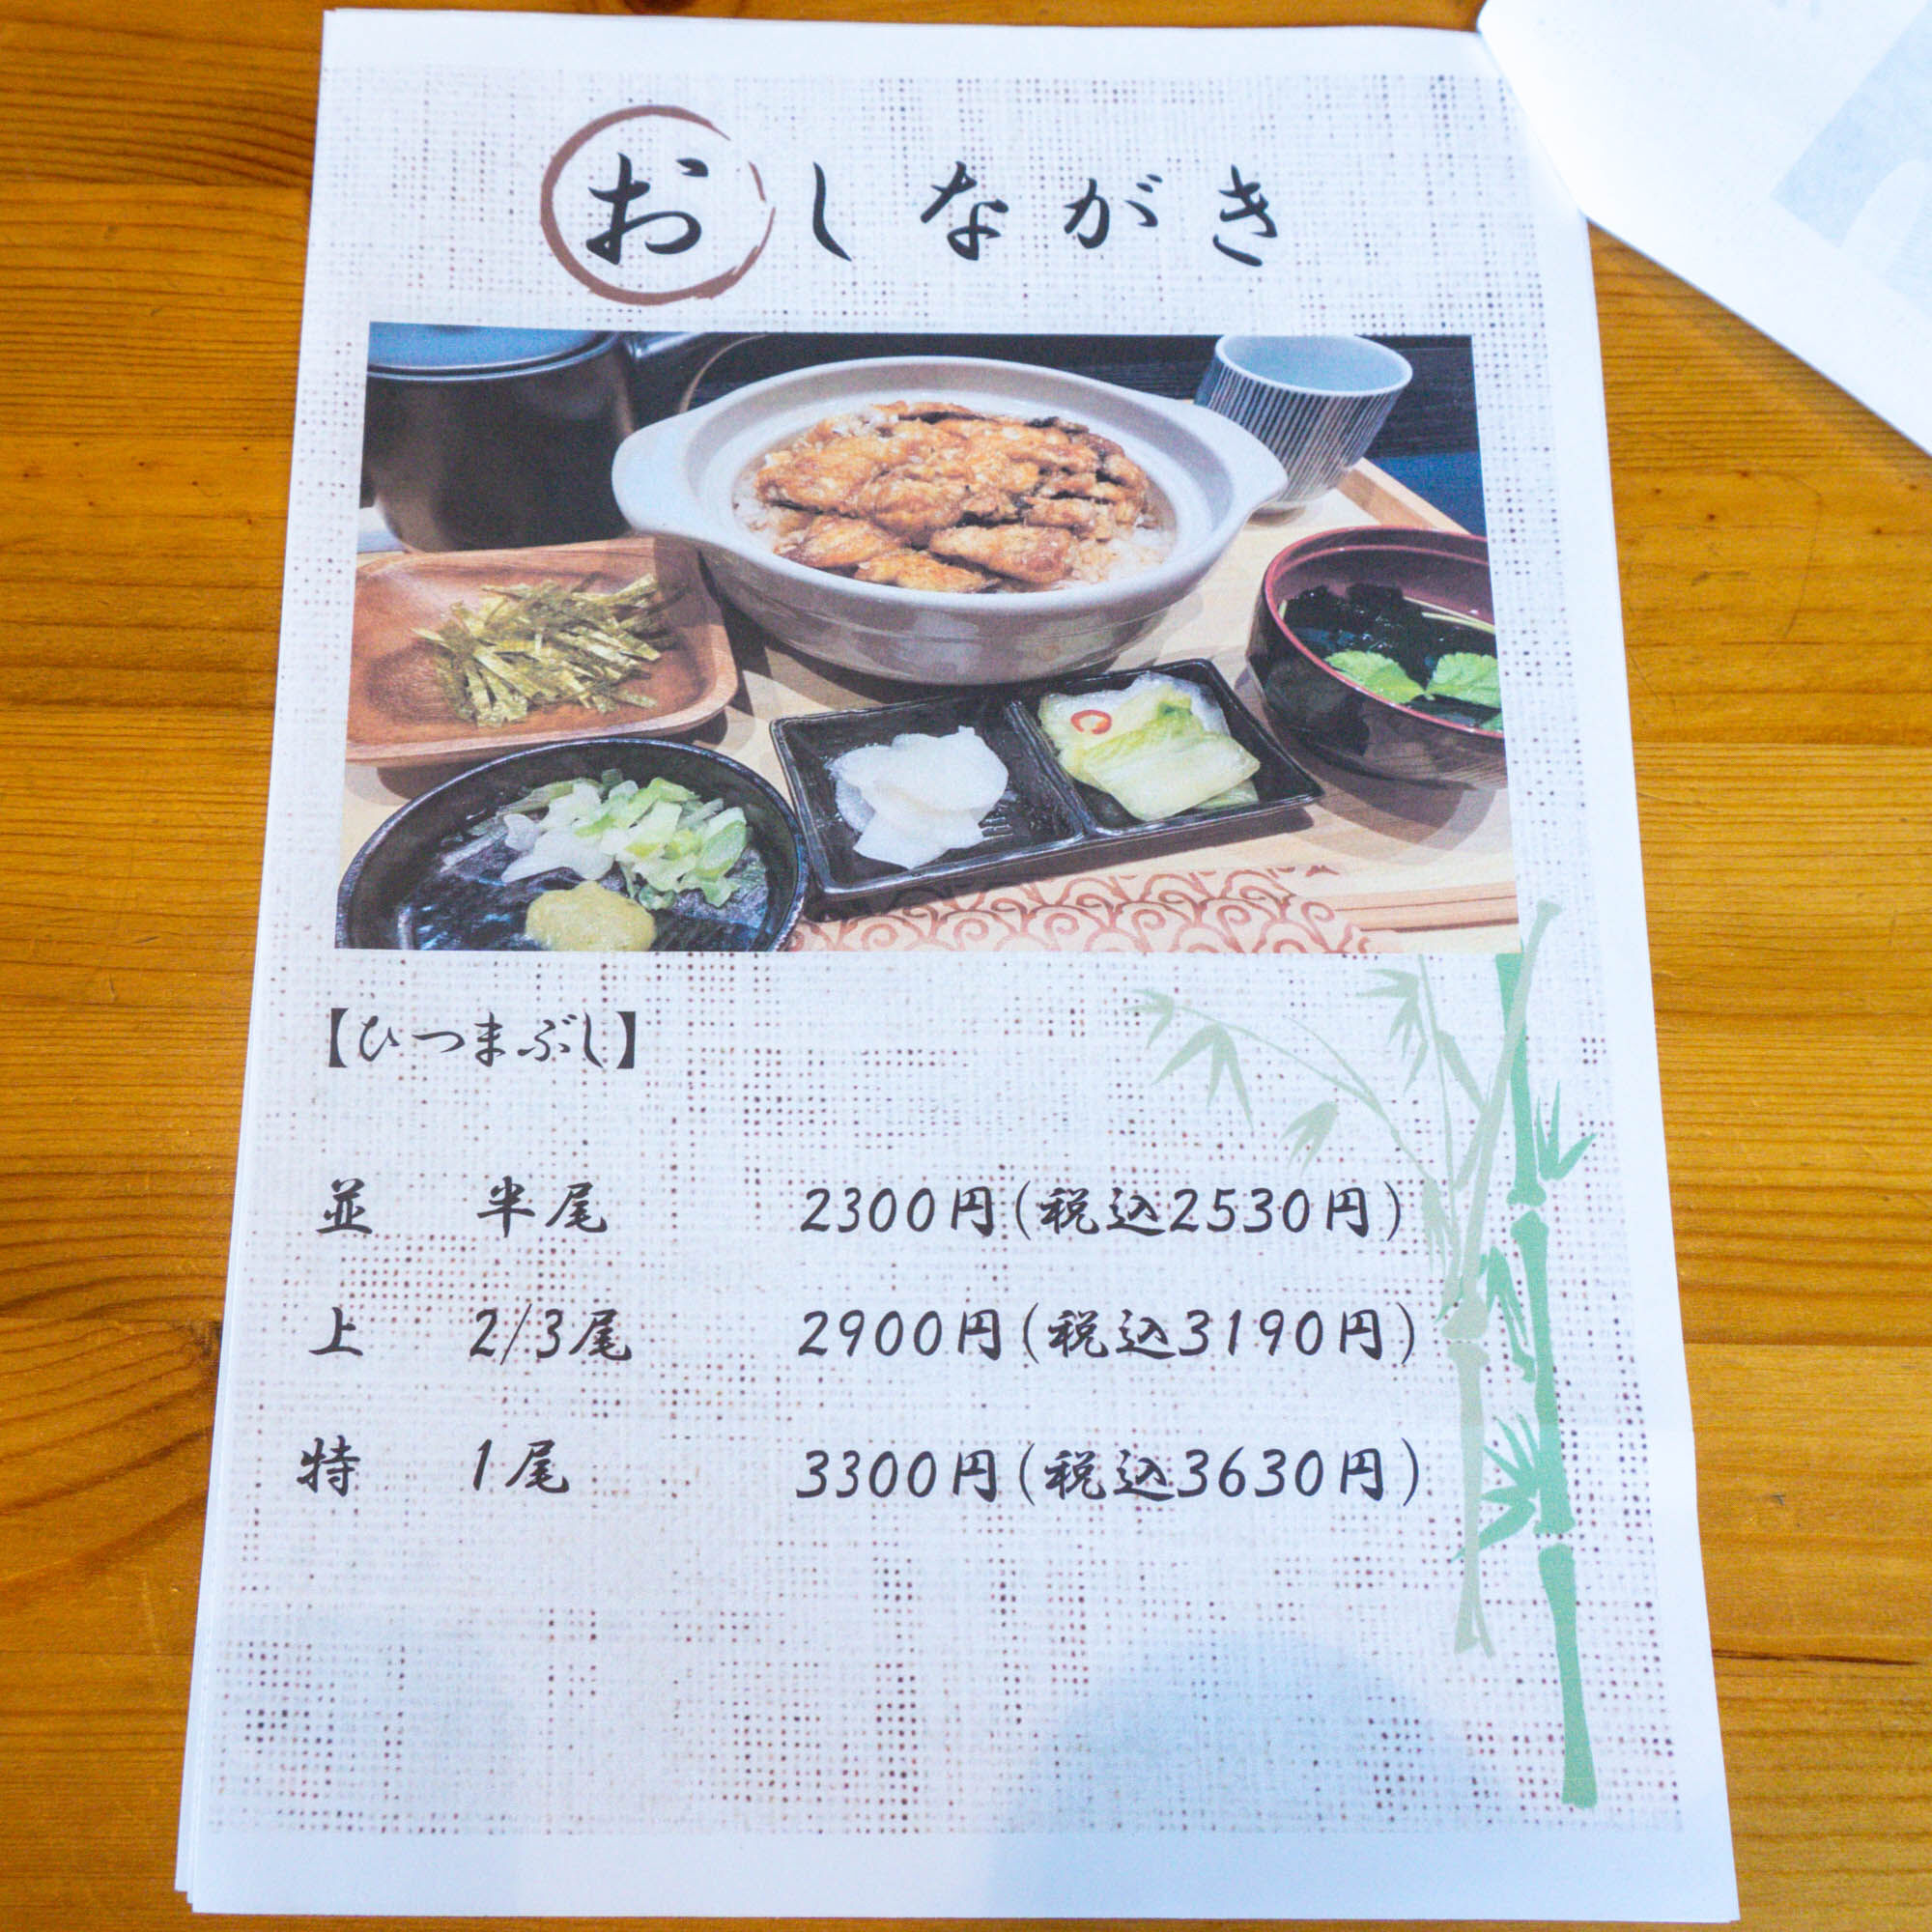 おしながき
【ひつまぶし】
並 半尾 2300円(税込2530円)
上 2/3尾 2900円(税込3190円)
特 1尾 3300円(税込3630円)